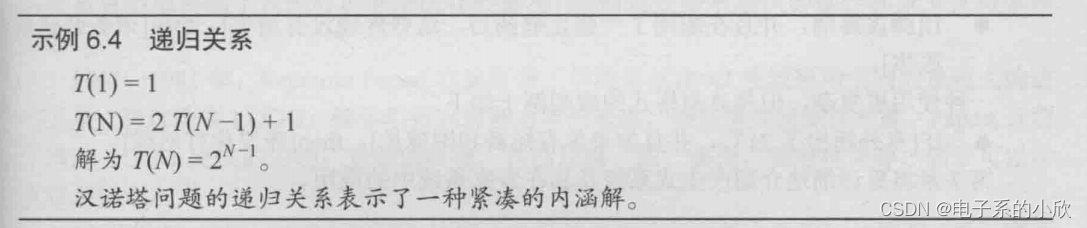 示例 6.4 递归关系
T(1) = 1
T(N) = 2 T(N −1) + 1
解为 T(N) = 2^{N−1}。
汉诺塔问题的递归关系表示了一种紧凑的内涵解。
CSDN @电子系的小欣